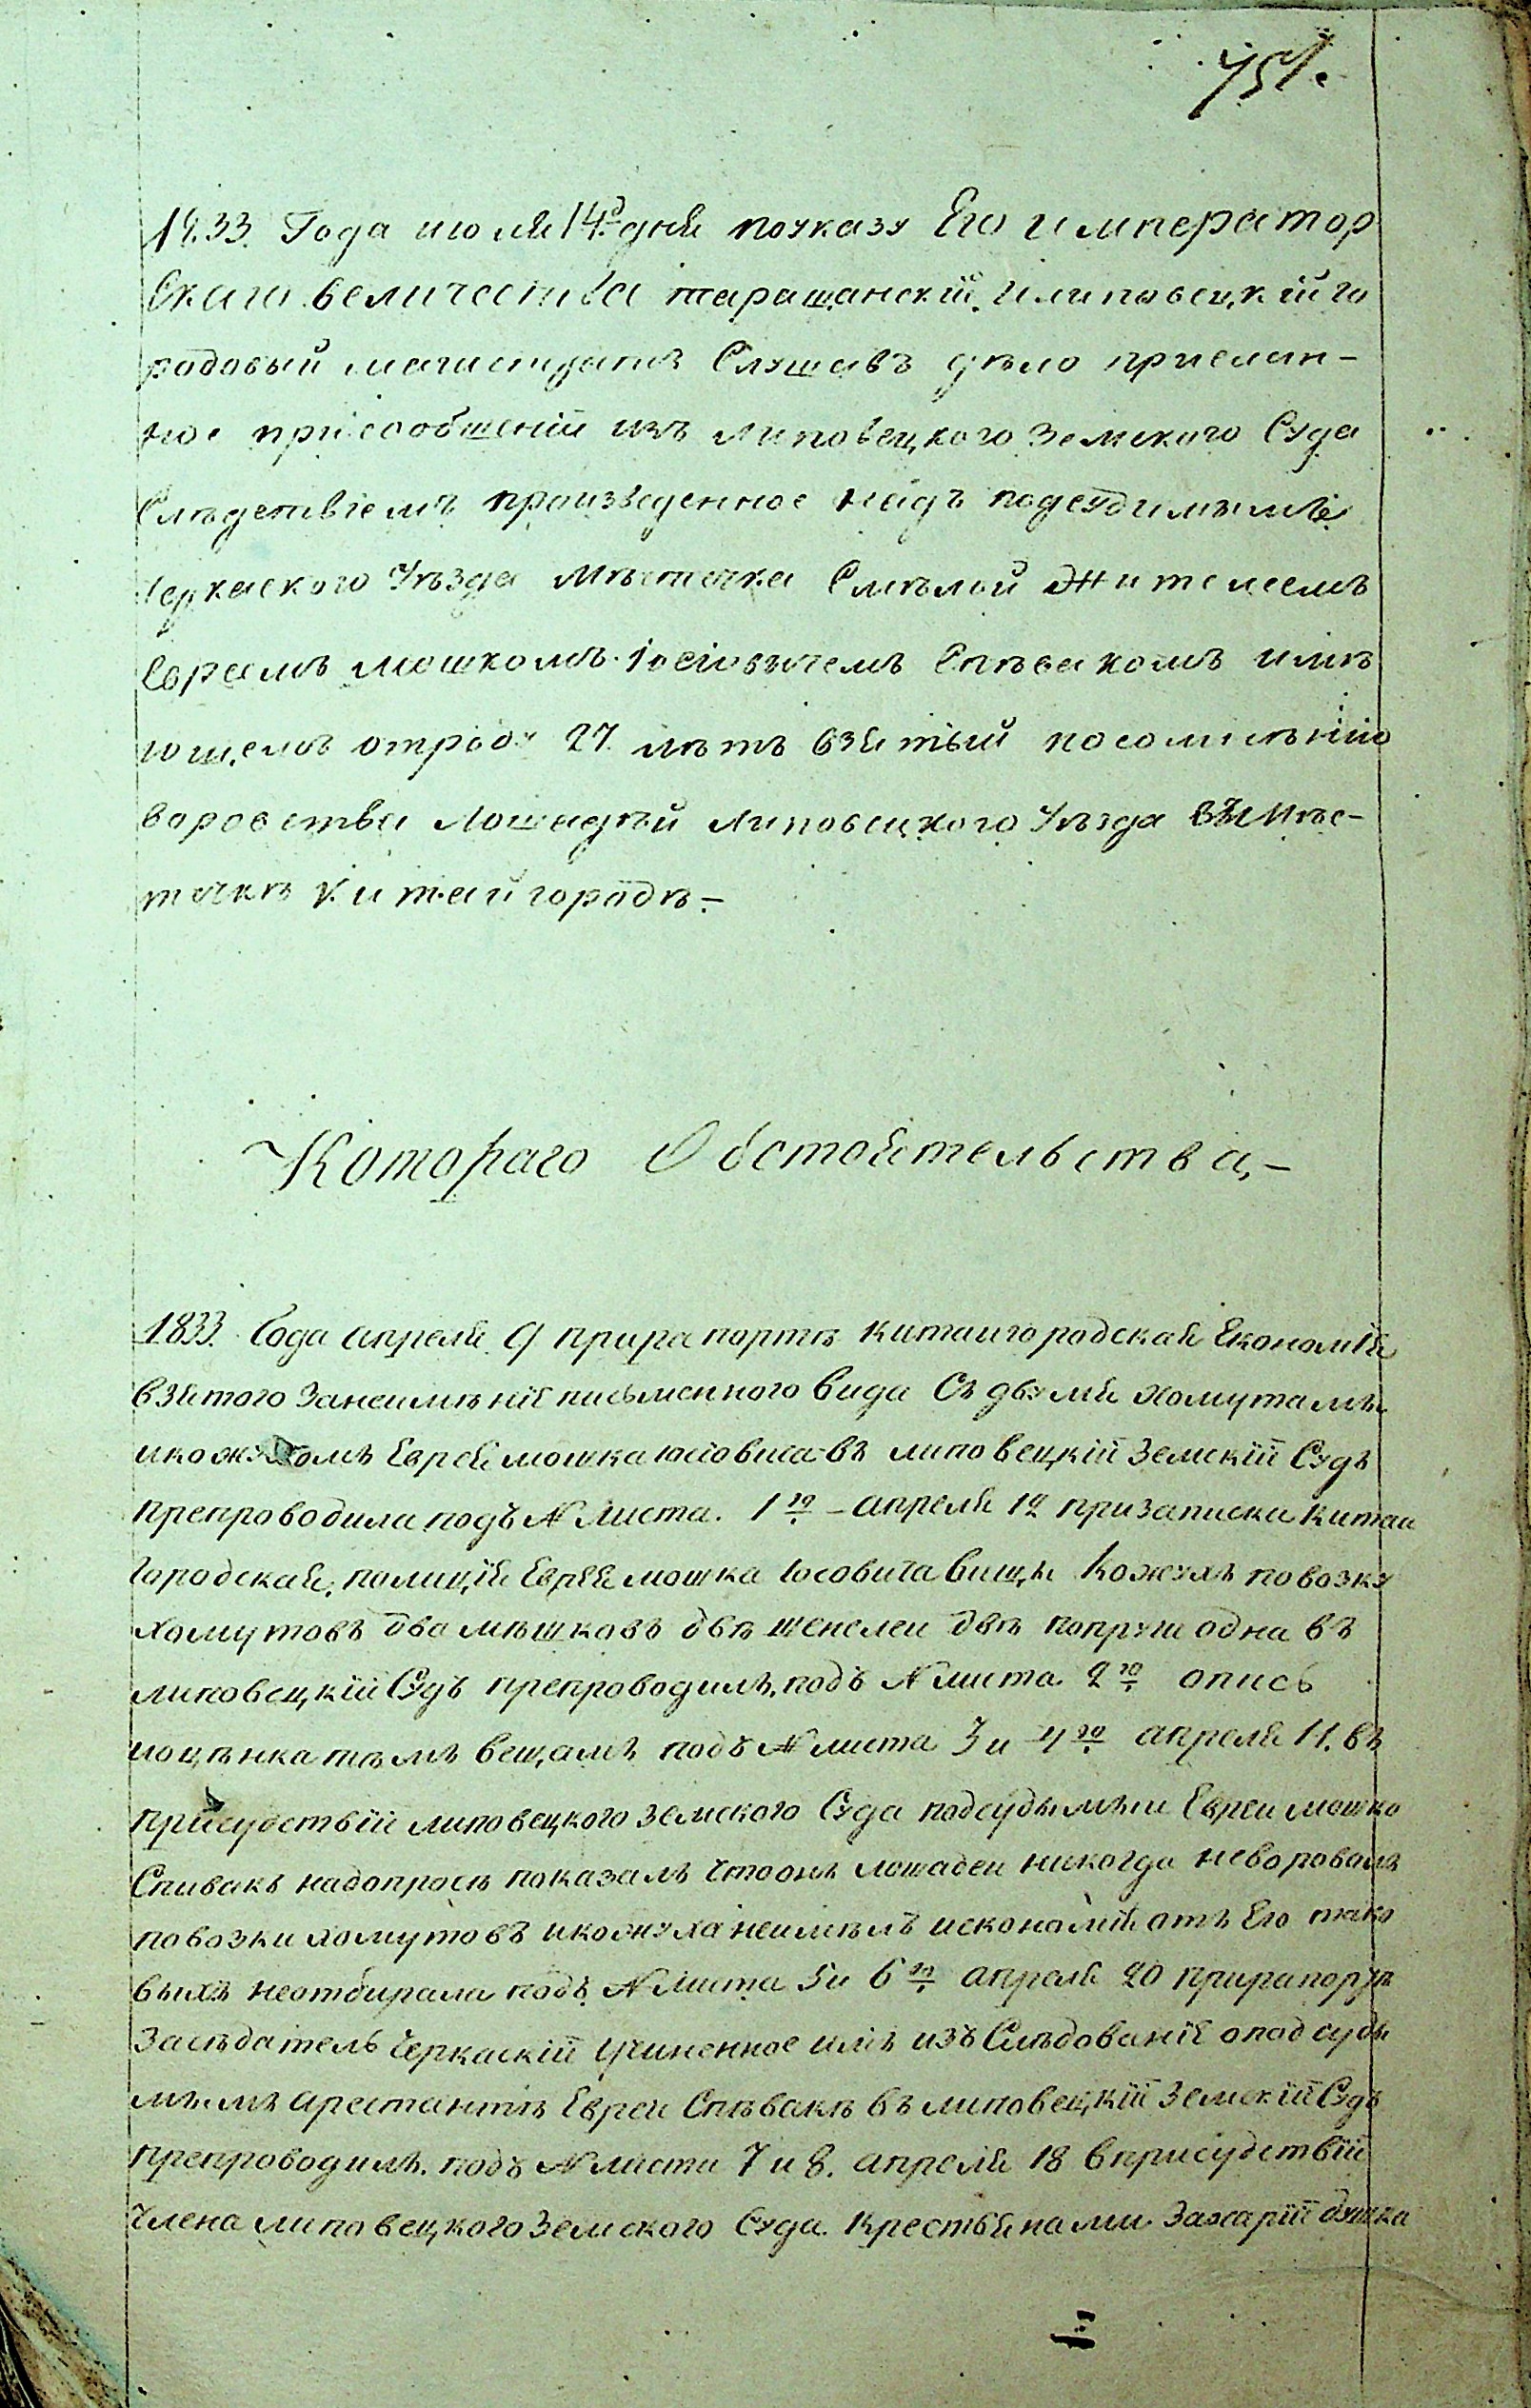 751.
1833. Года июля 14.д дня поуказу Его император
скаго величества таращанскій Илиповецкій го
родовый магистратъ Слушавъ дѣло прислан-
ное присообщеніи изъ липовецкого Земского Суда
Слѣдствіемъ произведенное надъ подсудимымъ
Черкаского уѣзда мѣстечка Смѣлой жителеемъ
Евреемъ мошкомъ Іосіовичемъ Спѣвакомъ имѣ
ющемъ отроду 27 лѣтъ взятый посомнѣнію
воровства лошадѣй липовецкого Уѣзда въ Мѣс-
течкѣ Китайгородѣ-
Котораго Обстоятельства,-
1833. Года апреля 9 прирапортѣ китайгородская Економія
взятого Занеимѣніе письменного вида Съ двумя хомутамы
икожухомъ Еврея мошка юсіовича въ липовецкій Земскій Судъ
препроводила подъ N листа. 1го - апреля 12 призаписки китай
городская полиція Еврея мошка Юсовича вищы кожухъ повозку
хомутовъ два мѣшковъ двѣ шенелеи двѣ попруги одна въ
липовецкій Судъ препроводилъ, подъ N листа 2го опись
иоцѣнка тѣмъ вещамъ подъ N листа 3 и 4го апреля 11. въ
присудствіи липовецкого земского Суда подсудымыи Евреи мошко
Спивакъ надопросѣ показалъ Чтоонъ лошадеи никогда неворовалъ
повозки хомутовъ икожуха неимѣлъ иекономія отъ Его тако
выхъ неотбирала подъ N листа 5и 6го апреля 20 прирапортѣ
засѣдатель Черкаскій Учиненное имъ изъ Слѣдованіе оподсуды
мымъ арестантѣ Евреи Спѣвакѣ въ липовецкій Земскій Судъ
препроводилъ. подъ N листа 7 и 8. апреля 18 вприсудствіи
Члена липовецкого Земского Суда крестьянами Захарій душка